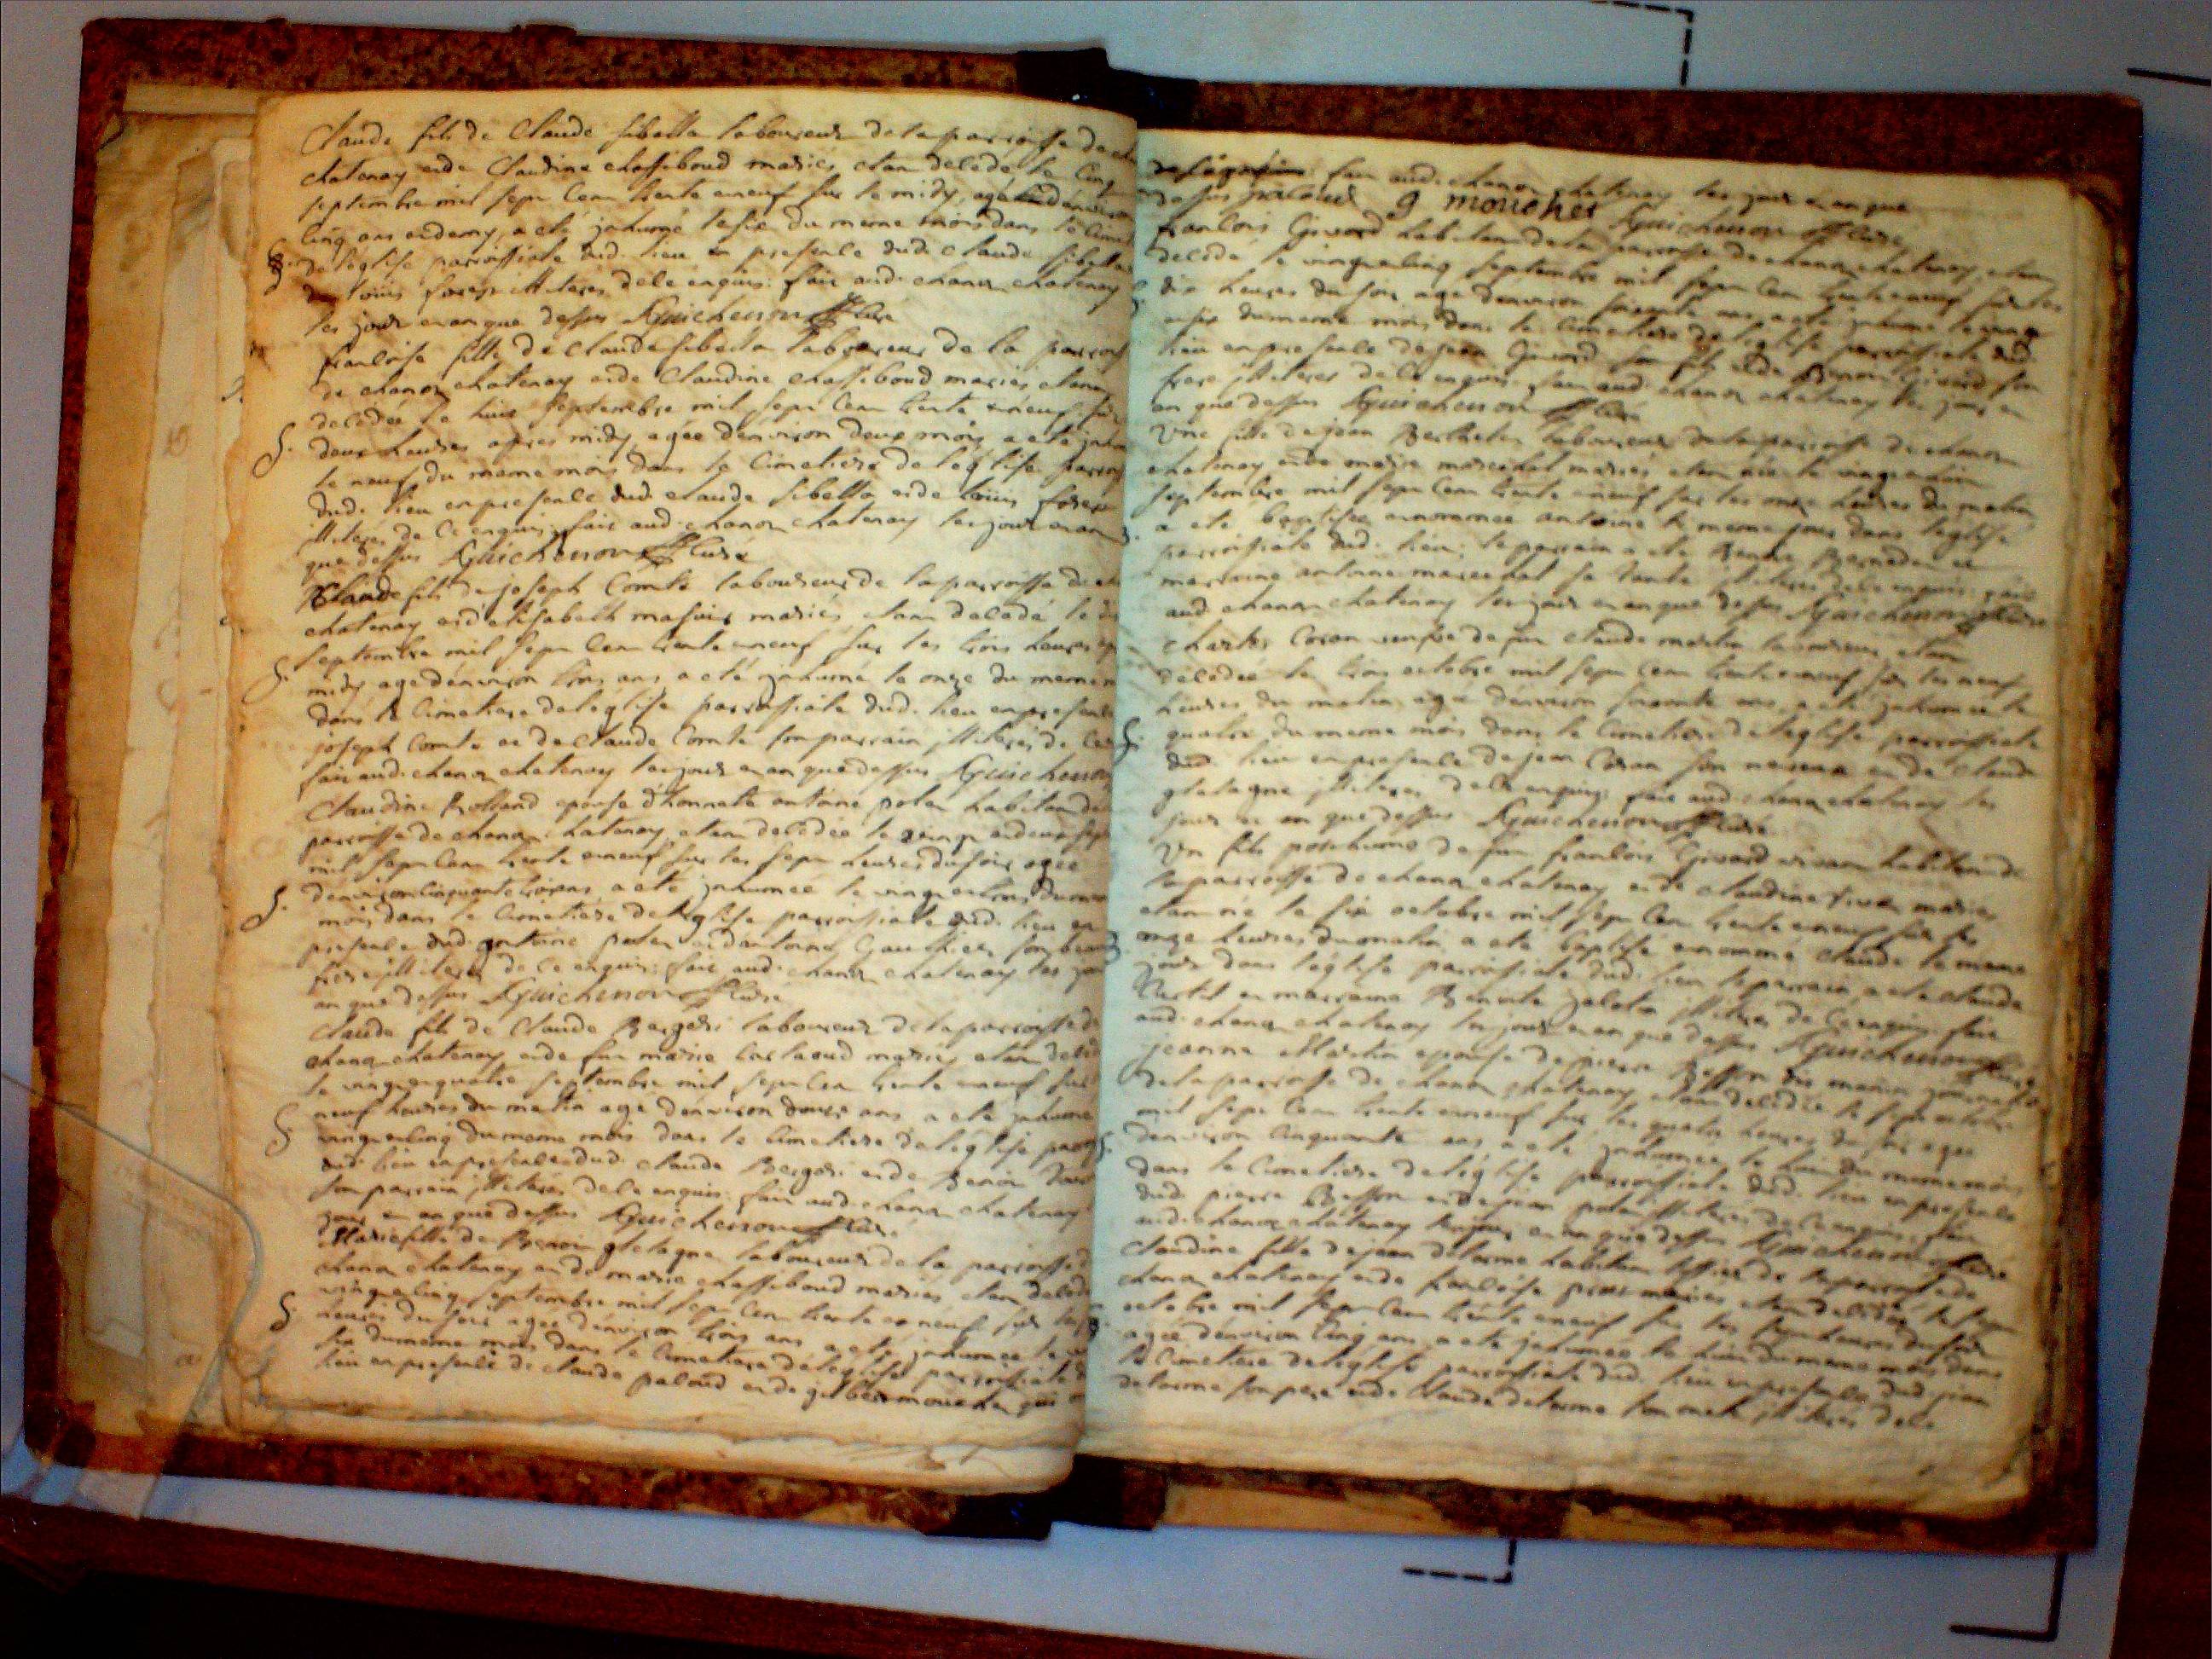 Claude fils de Claude sibella laboureur de la parroisse de
chatenay et de Claudine chassiboud mariés etant decede le cinq
septembre mil sept cent trente et neuf sur le midy, agé d'environ
cinq ans et demy, a eté jnhumé le six du meme mois dans le cime
de l'eglise parroissiale dud. lieu en presence dud. Claude sibella
de louis forest illiteres de ce enquis. fait aud. chanoz chatenay
les jour et an que dessus Guichenon curé
francoise fille de Claude sibella laboureur de la parroiss
de chanoz chatenay et de Claudine chassiboud mariés etant
decedée le huit septembre mil sept cent trente et neuf sur
S. deux heures apres midy agée d'environ deux mois a eté jnhu
le neuf du meme mois dans le cimetiere de l'eglise parroiss
dud. lieu en presence dud. claude sibella et de louis forest
illiteres de ce enquis. fait aud. chanoz chatenay les jour et an
que dessus Guichenon curé
Claude fils de joseph Comte laboureur de la parroisse de
chatenay et d'elisabeth mariés etant decedé le
septembre mil sept cent trente et neuf sur les trois heures
S. midy agé d'environ trois ans a eté jnhumé le onze du meme
dans le cimetiere de l'eglise parroissiale dud. lieu en presence
joseph Comte et de claude Comte son parrain illiteres de ce
fait aud. chanoz chatenay les jour et an que dessus Guichenon
Claudine Rolland epouse d'honnete antoine polet habitan de
parroisse de chanoz chatenay, etant decedée le vingt et deux sept
mil sept cent trente et neuf sur les sept heures du soir agée
S. d'environ cinquante trois ans a eté jnhumée le vingt et trois du mem
mois dans le cimetiere de l'eglise parroissiale dud. lieu en
presence dud. antoine polet et d'antoine Gauthier son beau
frere illiteres de ce enquis. fait aud. chanoz chatenay les jour
an que dessus Guichenon curé
Claude fils de Claude Bergeri laboureur de la parroisse de
chanoz chatenay et de fut marie mariés etant decedé
le vingt et quatre septembre mil sept cent trente et neuf sur
neuf heures du matin agé d'environ douze ans a eté jnhumé
S. vingt et cinq du meme mois dans le cimetiere de l'eglise parroi
dud. lieu en presence dud. claude Bergeri et de Benoit
son parrain illiteres de ce enquis. fait aud. chanoz chatenay
jour et an que dessus Guichenon curé
Marie fille de Benoit gletagne laboureur de la parroisse d
chanoz chatenay et de marie chassiboud mariés etant decedé
vingt et cinq septembre mil sept cent trente et neuf sur les
S. heures du soir agée d'environ trois ans a eté jnhumée le
six du meme mois dans le cimetiere de l'eglise parroissiale
lieu en presence de claude paloud et de gilbert mouchet qui
fait aud. chanoz chatenay les jour et an que
dessus paloud g mouchet Guichenon curé
francois Givord habitan de la parroisse de chanoz chatenay etant
decedé le vingt et cinq septembre mil sept cent trente et neuf sur les
dix heures du soir agé d'environ soixante ans a eté jnhumé le vingt
et six du meme mois dans le cimetiere de l'eglise parroissiale dud.
lieu en presence de jean Givord son fils et de Benoit Givord son
frere illiteres de ce enquis. fait aud. chanoz chatenay les jour et
an que dessus Guichenon curé
Une fille de jean Berthelet laboureur de la parroisse de chanoz
chatenay et de marie marechal mariés etant née le vingt et
septembre mil sept cent trente et neuf sur les onze heures du matin
a eté baptisée et nommée antoine le meme jour dans l'eglise
parroissiale dud. lieu; le parrain a eté Benoit et
marraine antoine marechal sa tante illiteres de ce enquis. fait
aud. chanoz chatenay les jour et an que dessus Guichenon curé
Coran veufve de fut claude martin laboureur etant
decedée le trois octobre mil sept cent trente et neuf sur les neuf
heures du matin agée d'environ soixante ans a eté jnhumée le
S. quatre du meme mois dans le cimetiere de l'eglise parroissiale
dud. lieu en presence de jean Coran son neveux et de claude
gletagne illiteres de ce enquis. fait aud. chanoz chatenay les
jour et an que dessus Guichenon curé
Un fils posthume de fut francois Givord vivant habitan de
la parroisse de chanoz chatenay et de claudine mariés
etant né le six octobre mil sept cent trente et neuf sur les
onze heures du matin a eté baptisé et nommé Claude le meme
jour dans l'eglise parroissiale dud. lieu le parrain a eté claude
et marraine Benoite illiteres de ce enquis. fait
aud. chanoz chatenay les jour et an que dessus Guichenon curé
jeanne Martin epouse de pierre Besson
de la parroisse de chanoz chatenay etant decedée le sept octobre
mil sept cent trente et neuf sur les quatre heures du soir agée
S. d'environ cinquante ans a eté jnhumée le huit du meme mois
dans le cimetiere de l'eglise parroissiale dud. lieu en presence
dud. pierre Besson et de jean polet illiteres de ce enquis. fait
aud. chanoz chatenay les jour et an que dessus Guichenon curé
Claudine fille de jean delorme habitan tissier de la parroisse de
chanoz chatenay et de francoise mariés etant decedée le sept
octobre mil sept cent trente et neuf sur les sept heures du soir
agée d'environ cinq ans a eté jnhumée le huit du meme mois dans
le cimetiere de l'eglise parroissiale dud. lieu en presence dud. jean
delorme son pere et de Claude delorme son oncle illiteres de ce